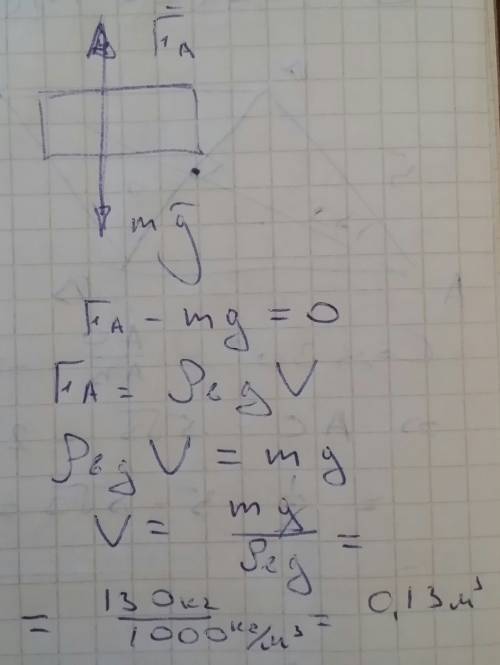 F̅A
mg̅
FA - mg = 0
FA = ρв g V
ρв g V = mg
V = mg / ρв g =
= 130кг / 1000кг/м³ = 0,13м³